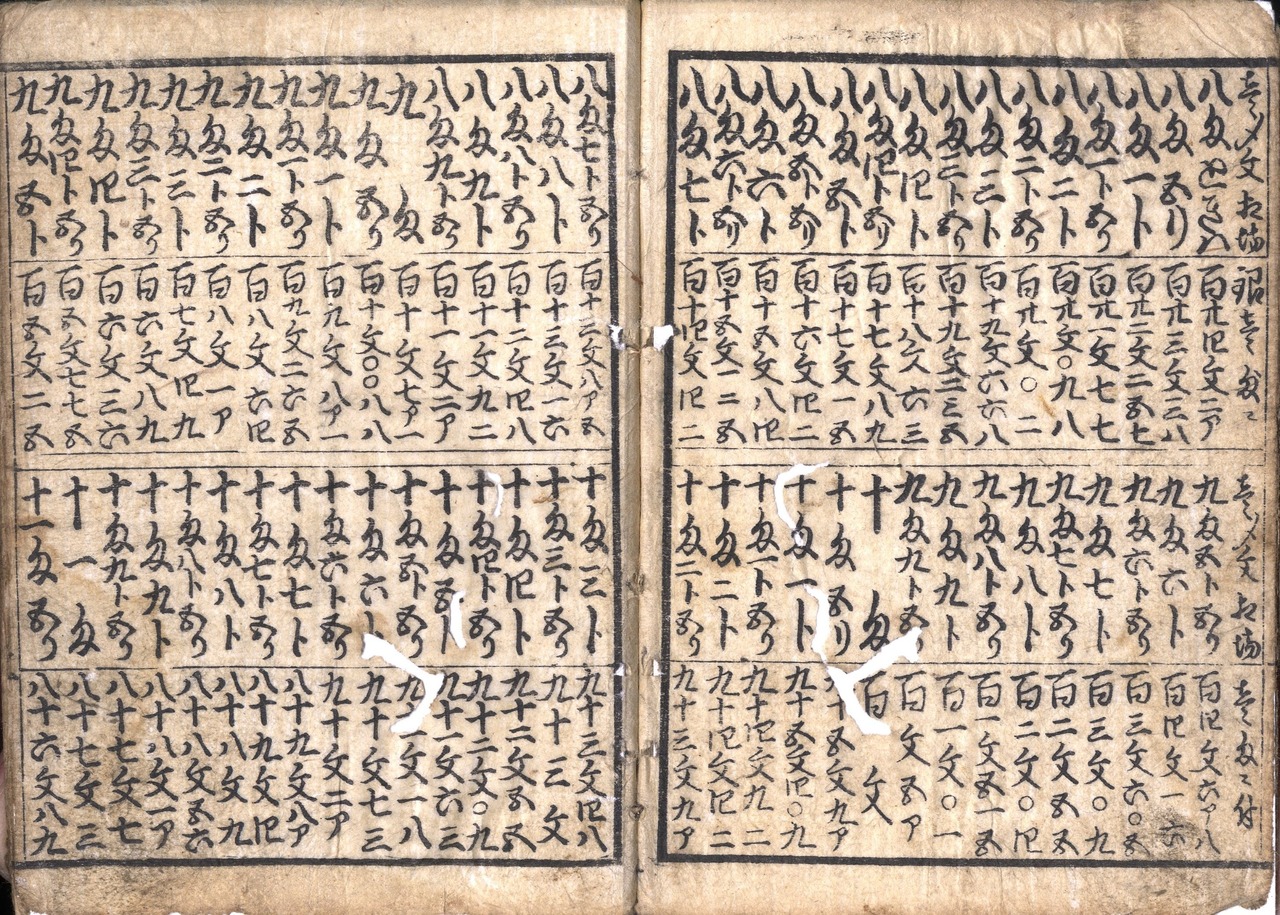 壱〆文相場 銀壱匁ニ
八匁 百廿四文二ア
八匁五リ 百廿三文三八
八匁一ト 百廿二文二五七
八匁一ト五リ 百廿一文七七
八匁二ト 百廿文〇九八
八匁二ト五リ 百廿文〇二
八匁三ト 百十九文六六八
八匁三ト五リ 百十九文三三五
八匁四ト 百十八文六三
八匁四ト五リ 百十七文八九
八匁五ト 百十七文一五
八匁五ト五リ 百十六文四二
八匁六ト 百十五文八四
八匁六ト五リ 百十五文一二五
八匁七ト 百十四文四二
壱〆文相場 壱匁ニ付
九匁五ト五リ 百四文六ア八
九匁六ト 百四文一六
九匁六ト五リ 百三文六〇五
九匁七ト 百三文〇九
九匁七ト五リ 百二文五五
九匁八ト 百二文〇四
九匁八ト五リ 百一文五一五
九匁九ト 百一文〇一
九匁九ト五リ 百文五ア
十匁 百文
十匁五リ 十五文九ア
十匁一ト 九十五文四〇九
十匁一ト五リ 九十四文九二
十匁二ト 九十四文四二
十匁二ト五リ 九十三文九ア
八匁七ト五リ 百十三文八ア五
八匁八ト 百十三文一六
八匁八ト五リ 百十二文四八
八匁九ト 百十一文九二
八匁九ト五リ 百十一文二ア
九匁 百十文七ア一
九匁五リ 百十文〇〇八八
九匁一ト 百九文八ア一
九匁一ト五リ 百九文二六五
九匁二ト 百八文六四
九匁二ト五リ 百八文一ア
九匁三ト 百七文四九
九匁三ト五リ 百六文八九
九匁四ト 百六文三六
九匁四ト五リ 百五文七七五
九匁五ト 百五文二五
十匁三ト 九十三文四八
十匁三ト五リ 九十三文
十匁四ト 九十二文五五
十匁四ト五リ 九十二文〇九
十匁五ト 九十一文六三
十匁五ト五リ 九文一八
十匁六ト 九十文七三
十匁六ト五リ 九十文二ア
十匁七ト 八十九文八ア
十匁七ト五リ 八十九文四
十匁八ト 八十八文九
十匁八ト五リ 八十八文五六
十匁九ト 八十八文一ア
十匁九ト五リ 八十七文七
十一匁 八十七文三
十一匁五リ 八十六文八九